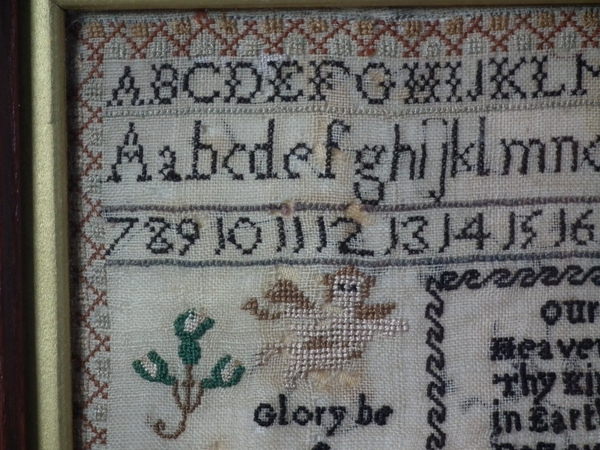 ABCDEFGHIJKLM
Aabcdefghijklmno
7 8 9 10 11 12 13 14 15 16
Our
Heaven
Thy Kin
in Earth
Glory be